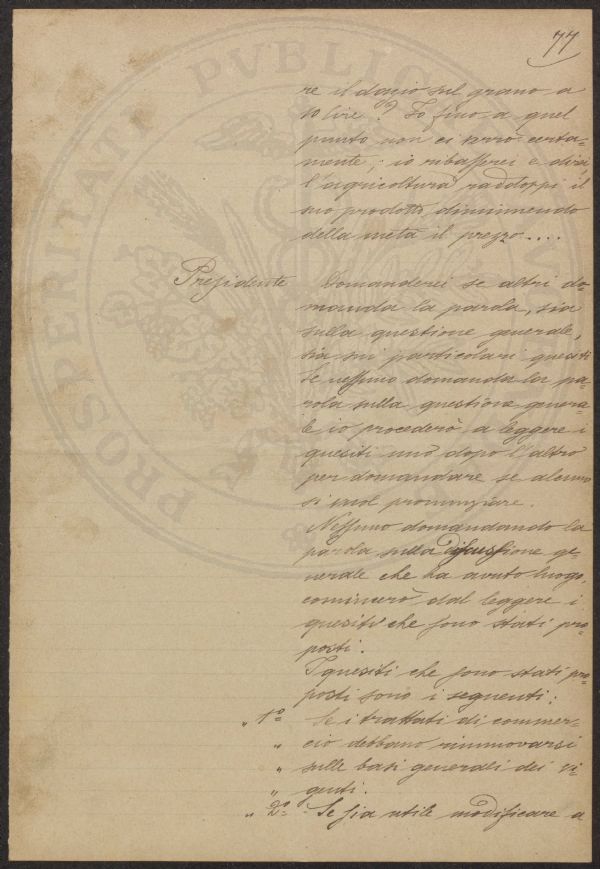 77
re il dazio sul grano a
10 lire? Io fino a quel
punto non ci verrò certa-
mente; io ribasserei e direi,
l'agricoltura raddoppi il
suo prodotto, diminuendo
della metà il prezzo....
Presidente Domanderei se altri do-
manda la parola, sia
sulla questione generale,
sia sui particolari quesiti.
Se nessuno domanda la pa-
rola sulla questione genera-
le io procederò a leggere i
quesiti uno dopo l'altro
per domandare se alcuno
si vuol pronunziare.
Nessuno domandando la
parola sulla discussione ge-
nerale che ha avuto luogo,
comincerò dal leggere i
quesiti che sono stati pro-
posti.
I quesiti che sono stati pro-
posti sono i seguenti:
„ 1º Se i trattati di commer-
„ cio debbano rinnovarsi
„ sulle basi generali dei vi-
„ genti.
„ 2º Se sia utile modificare a
PROSPERITATI PVBLICAE